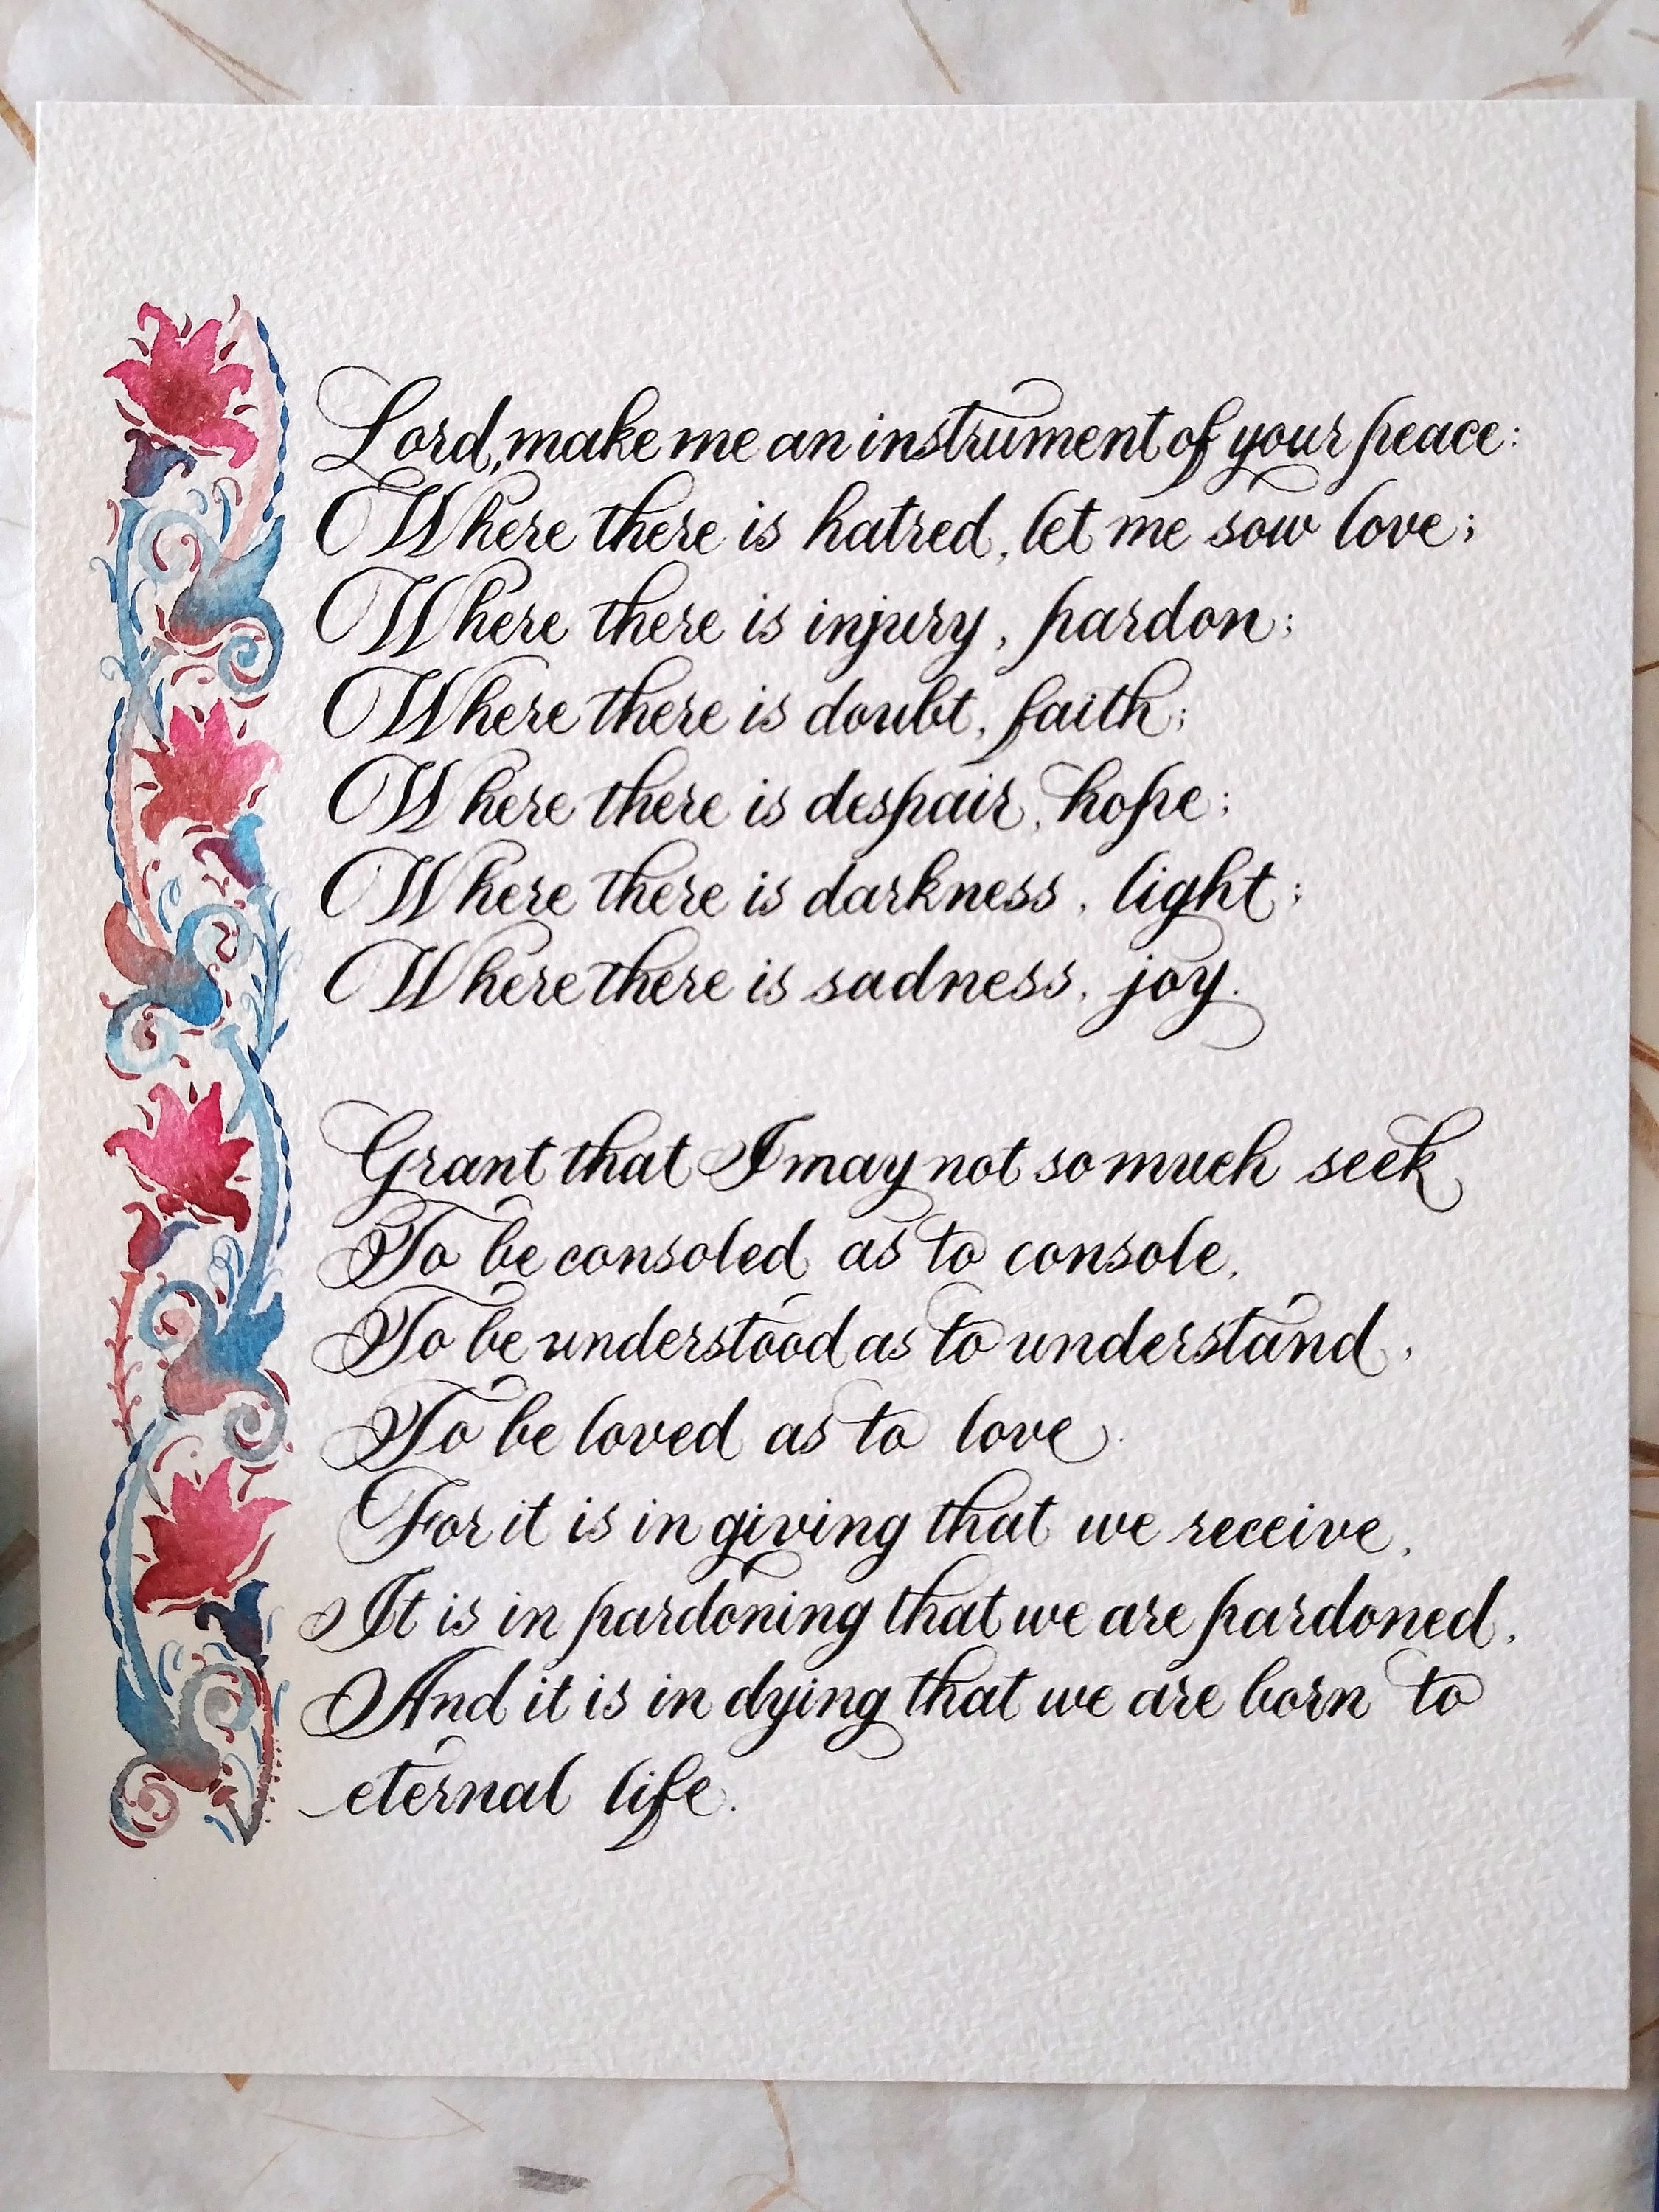 Lord, make me an instrument of your peace:
Where there is hatred, let me sow love;
Where there is injury, pardon;
Where there is doubt, faith;
Where there is despair, hope;
Where there is darkness, light;
Where there is sadness, joy.
Grant that I may not so much seek
To be consoled as to console,
To be understood as to understand,
To be loved as to love.
For it is in giving that we receive,
It is in pardoning that we are pardoned,
And it is in dying that we are born to
eternal life.